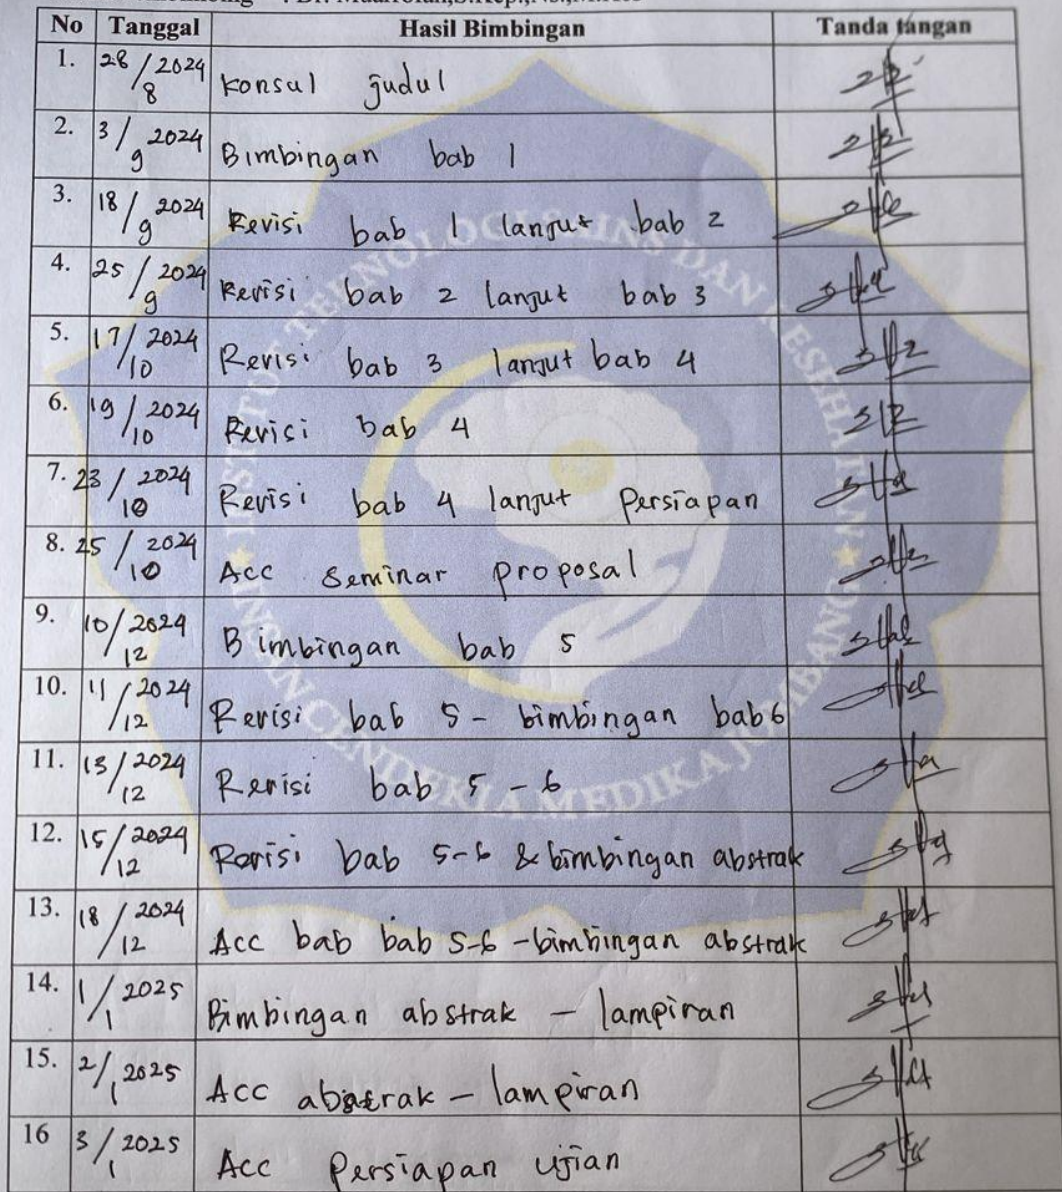 No Tanggal Hasil Bimbingan Tanda tangan
1. 28/8 2024 Konsul judul
2. 3/9 2024 Bimbingan bab 1
3. 18/9 2024 Revisi bab 1 lanjut bab 2
4. 25/9 2024 Revisi bab 2 lanjut bab 3
5. 17/10 2024 Revisi bab 3 lanjut bab 4
6. 19/10 2024 Revisi bab 4
7. 23/10 2024 Revisi bab 4 lanjut Persiapan
8. 25/10 2024 Acc seminar proposal
9. 10/12 2024 Bimbingan bab 5
10. 11/12 2024 Revisi bab 5 - bimbingan bab 6
11. 13/12 2024 Revisi bab 5 - 6
12. 15/12 2024 Revisi bab 5-6 & bimbingan abstrak
13. 18/12 2024 Acc bab bab 5-6 - bimbingan abstrak
14. 1/1 2025 Bimbingan abstrak - lampiran
15. 2/1 2025 Acc abstrak - lampiran
16 3/1 2025 Acc Persiapan ujian
INSTITUT TEKNOLOGI SAINS DAN KESEHATAN
INSAN CENDEKIA MEDIKA JOMBANG